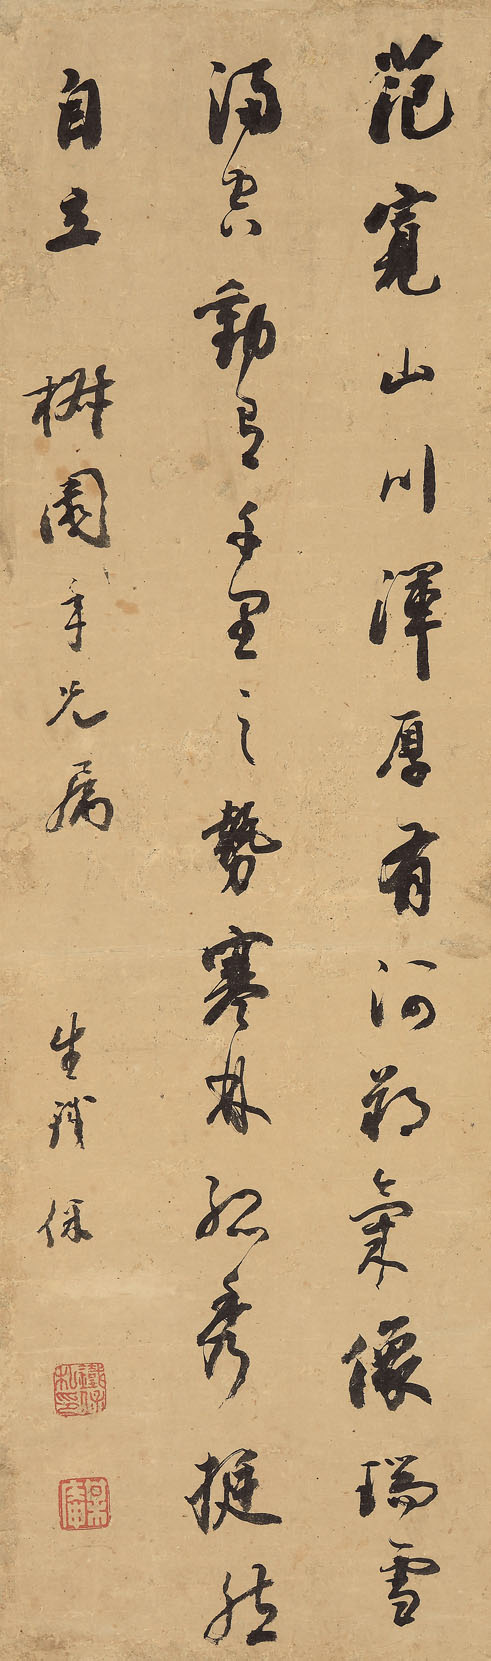 范寬山川渾厚有河朔氣像瑞雪
滿動有千里之勢寒林孤秀挺然
自立 園年兄屬 生鐵保
鐵保私印
某庵